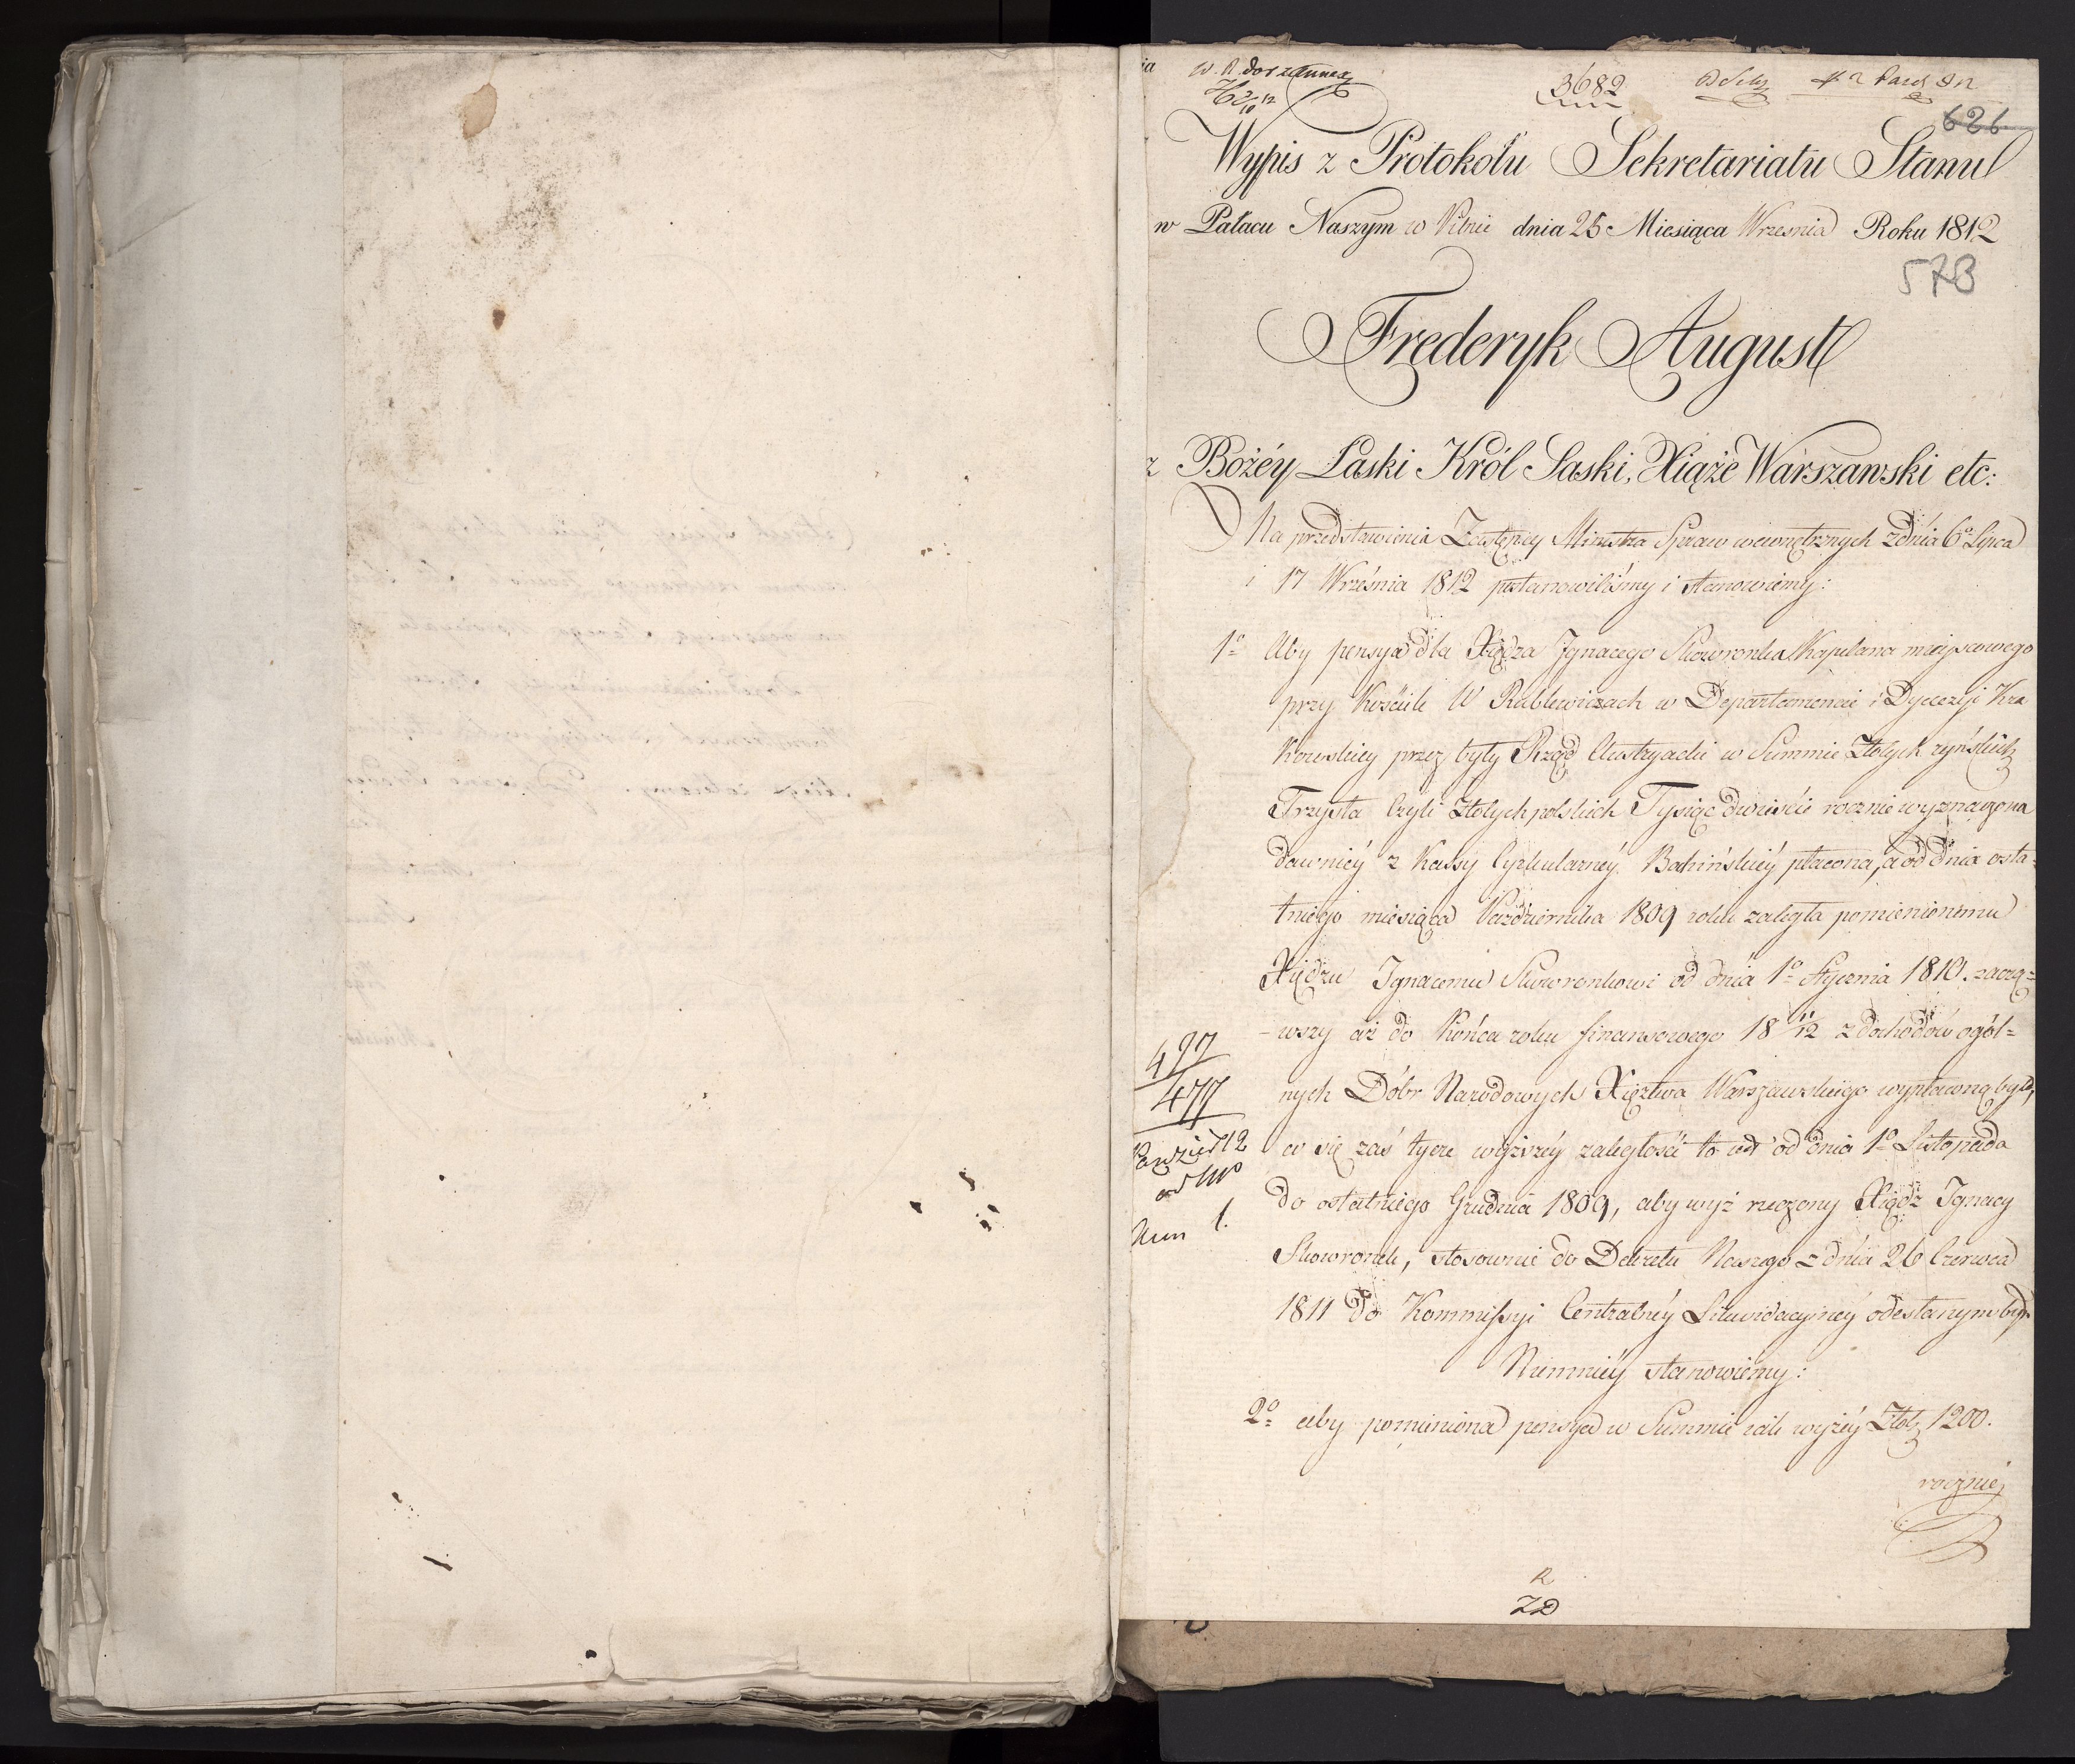 3682
626
Wypis z Protokołu Sekretariatu Stanu
w Pałacu Naszym w Pilnic dnia 25 Miesiąca Wrzesnia Roku 1812
573
Frederyk August
z Bożéy Łaski Król Saski, Xiąże Warszawski etc:
Na przedstawienia Zastępcy Ministra Spraw wewnętrznych z dnia 6º Lipca
i 17 Września 1812 postanowiliśmy i stanowiemy:
1º Aby pensya dla Xiędza Ignacego Skowronka Kapelana mieyscowego
przy Kościele W Rablewiczach w Departamencie i Dyecezyi Kra
kowskiey przez były Rząd Austryacki w Summie Złotych ryńskich
Trzysta czyli Złotych polskich Tysiąc dwieście rocznie wyznaczona
dawniey z Kassy Cyrkularnéy Bochińskiéy płacona, a od dnia osta=
tniego miesiąca Października 1809 roku zaległa pomienionemu
Xiędzu Ignacemu Skowronkowi od dnia 1º Stycznia 1810. zacząw=
-wszy aż do Końca roku finansowego 18 11/12 z dochodów ogól=
nych Dóbr Narodowych Xięztwa Warszawskiego wypłacaną była,
co się zaś tycze wyższéy zaległości to iest od dnia 1º Listopada
do ostatniego Grudnia 1809, aby wyż rzeczony Xiądz Ignacy
Skowronek, stosownie do Dekretu Naszego z dnia 26 Czerwca
1811 do Kommissyi Centralnéy Likwidacyinéy odesłanym był.
Niemniéy stanowiemy:
2º aby pomieniona pensya w Summie iak wyżéy Złotz 1200.
rocznie
427
477
Num 1.